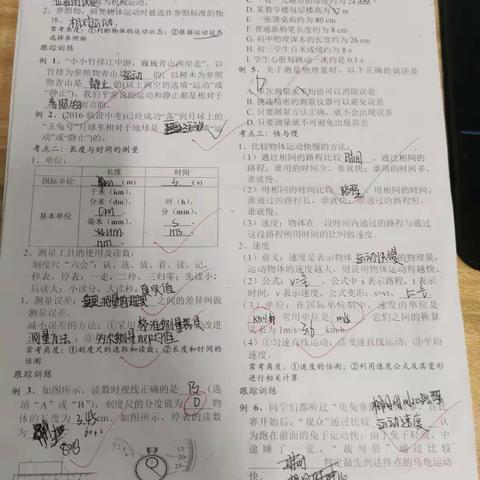 2. 参照物：研究物体运动时被选作参照标准的物体。相对运动
常考角度：①判断物体的运动状态；②根据运动状态选择参照物
跟踪训练
例 1．“小小竹排江中游，巍巍青山两岸走”。以竹排为参照物青山是 运动 的；以树木为参照物青山是 静止 的(以上两空均选填“运动”或“静止”)。我们平常说的运动和静止都是相对于 参照物
例 2．(2016 临沂中考)已成功“落”到月球上的“玉兔号”月球车相对于地球是 填“运动”或“静止”)。
考点二：长度与时间的测量
1．单位：
长度 时间
国际单位 (m) s (s)
基本单位
千米（km）、
分米（dm）、 时（h）、
cm 分（min）、
毫米（mm）、 s
ms
nm
2．测量工具的使用及读数：
刻度尺“六会”：认、选、放、看、读、记。
秒表、停表：一走、二停、三归零；先读小；后读大；小读分，大读秒。
3．测量误差： 之间的差异叫做测量误差。
减小误差的方法：①采用 改进测量方法；③多次测量取平均值
常考角度：①刻度尺的选取和读数；②长度和时间的估测
跟踪训练
例 3．如图所示，读数时视线正确的是 B （选填“A”或“B”），刻度尺的分度值为 物体的长度为 3.45 cm．如图所示，停表的读数为
D. 某教学楼每层楼高为
E. 一张课桌高约为 80 cm
F. 普通新粉笔长度约为 8 cm
G. 初中物理课本的长度约为 26 cm
H. 初三学生百米成绩约为 8 s
I. 学生心脏每跳动一次约是 0.1 s
例 5．关于测量物理量时，以下正确的说法是
A. 多次测量求平均值可以消除误差
B. 挑选精密的测量仪器可以避免误差
C. 只要测量方法正确，就不会出现误差
D. 只要测量就不可避免出现误差
考点三：快与慢
1．比较物体运动快慢的方法：
（1）通过相同的路程比较 时间，通过相同的路程，谁用的时间少，谁就快，谁用的时间多，谁就慢。
（2）用相同的时间比较 路程，用相同的时间，谁通过的路程长，谁就快，谁通过的路程短，谁就慢。
（3）速度：物体在一段时间内通过的路程与通过这段路程所用时间的比叫做速度。
2．速度
（1）意义：速度是表示物体 运动快慢 的物理量。运动物体的速度越大，则说明物体运动得越快。
（2）公式： ，公式中 s 表示路程，t 表示时间，v 表示速度。公式变形：s=vt、
（3）单位：在国际单位制中，速度的单位是 km/h，常用单位是 m/s，它们之间的换算关系为 1m/s= km/h。
（4）①匀速直线运动；②变速直线运动；③平均速度。
常考角度：①速度的估测；②利用速度公式及其变形进行相关计算
跟踪训练
例 6．同学们都听过“龟兔赛跑”的 ，比赛开始后，“观众”通过比较 运动速度 认为跑在前面的兔子运动快；由于兔子轻敌，中途睡了一觉，“裁判员”通过比较 时间 判定最先到达终点的乌龟运动快。